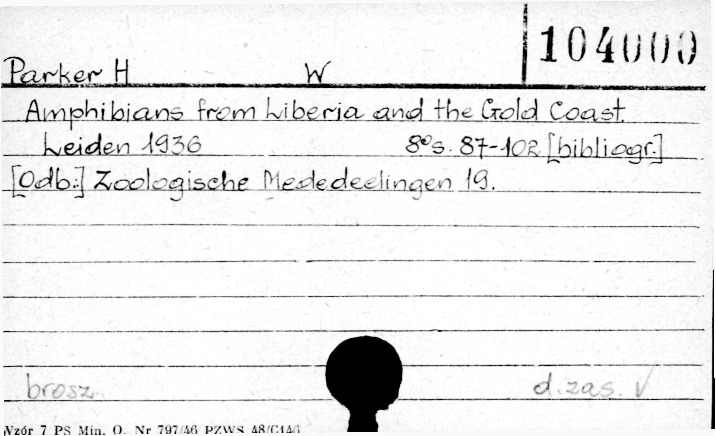 104000
Parker H W
Amphibians from Liberia and the Gold Coast.
Leiden 1936 8⁰ s. 87-102 [bibliogr.]
[Odb:] Zoologische Mededeelingen 19.
brosz. d.zas. V
Wzór 7 PS Min. O. Nr 797/46 PZWS 48/C146